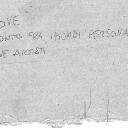 OVE
ONTO FRA I MONDI PERSONA
NE ARTISTA